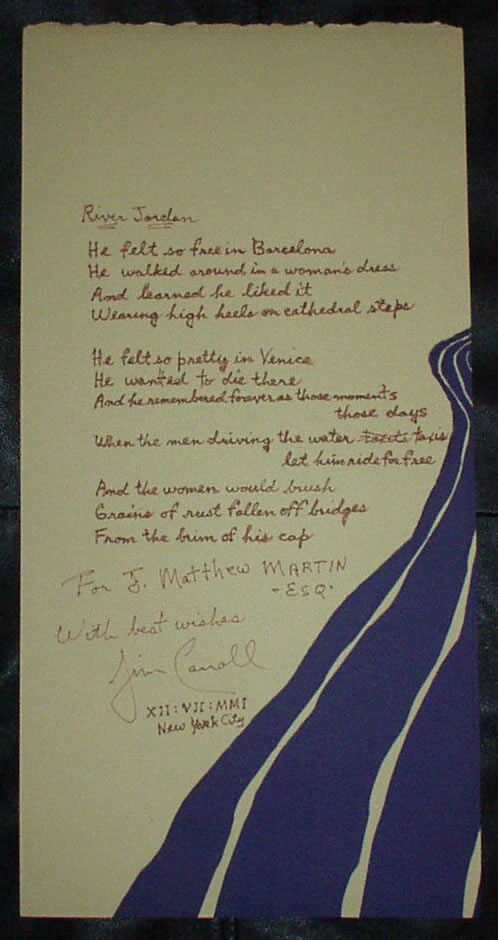 River Jordan
He felt so free in Barcelona
He walked around in a woman's dress
And learned he liked it
Wearing high heels on cathedral steps
He felt so pretty in Venice
He wanted to die there
And he remembered forever as those moments
those days
When the men driving the water taxis
let him ride for free
And the women would brush
Grains of rust fallen off bridges
From the brim of his cap
For J. Matthew MARTIN
- ESQ -
With best wishes
Jim Carroll
XII : VII : MMI
New York City